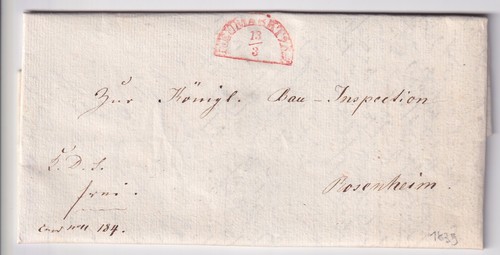 NEUMARKT
13
3
Zur Königl. Bau-Inspection
R. D. S.
frei.
184.
Rosenheim.
1839